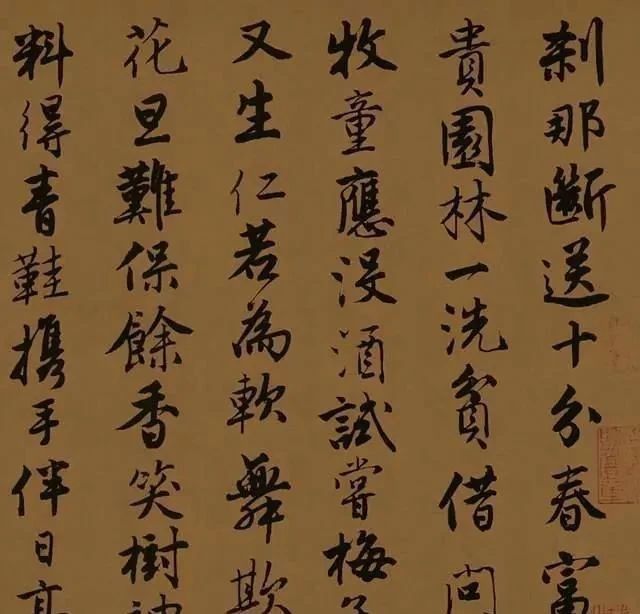 刹那斷送十分春富
貴園林一洗貧借問
牧童應没酒試嘗梅子
又生仁若為軟舞欺
花旦難保餘香笑樹神
料得青鞋携手伴日高